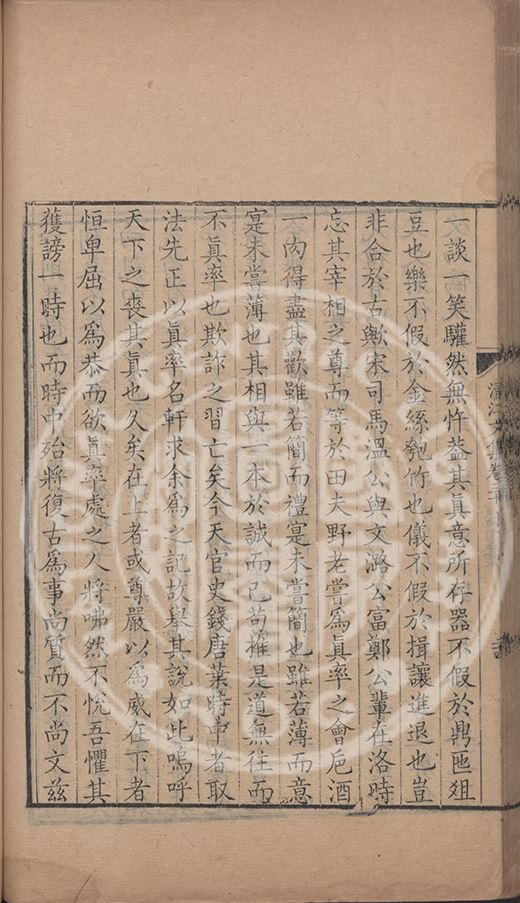 一談一笑驩然無忤葢其真意所存器不假於鼎匜俎
豆也樂不假於金絲匏竹也儀不假於揖讓進退也豈
非合於古歟宋司馬溫公與文潞公富鄭公輩在洛時
忘其宰相之尊而等於田夫野老嘗爲真率之會巵酒
一肉得盡其歡雖若簡而禮寔未嘗簡也雖若薄而意
寔未嘗薄也其相與一本於誠而已苟摧是道無往而
不真率也欺詐之習亡矣今天官史錢唐葉時中者取
法先正以真率名軒求余爲之記故舉其說如此嗚呼
天下之喪其真也久矣在上者或尊嚴以爲威在下者
恒卑屈以爲恭而欲真率處之人將咈然不悅吾懼其
獲謗一時也而時中殆將復古爲事尚質而不尚文兹